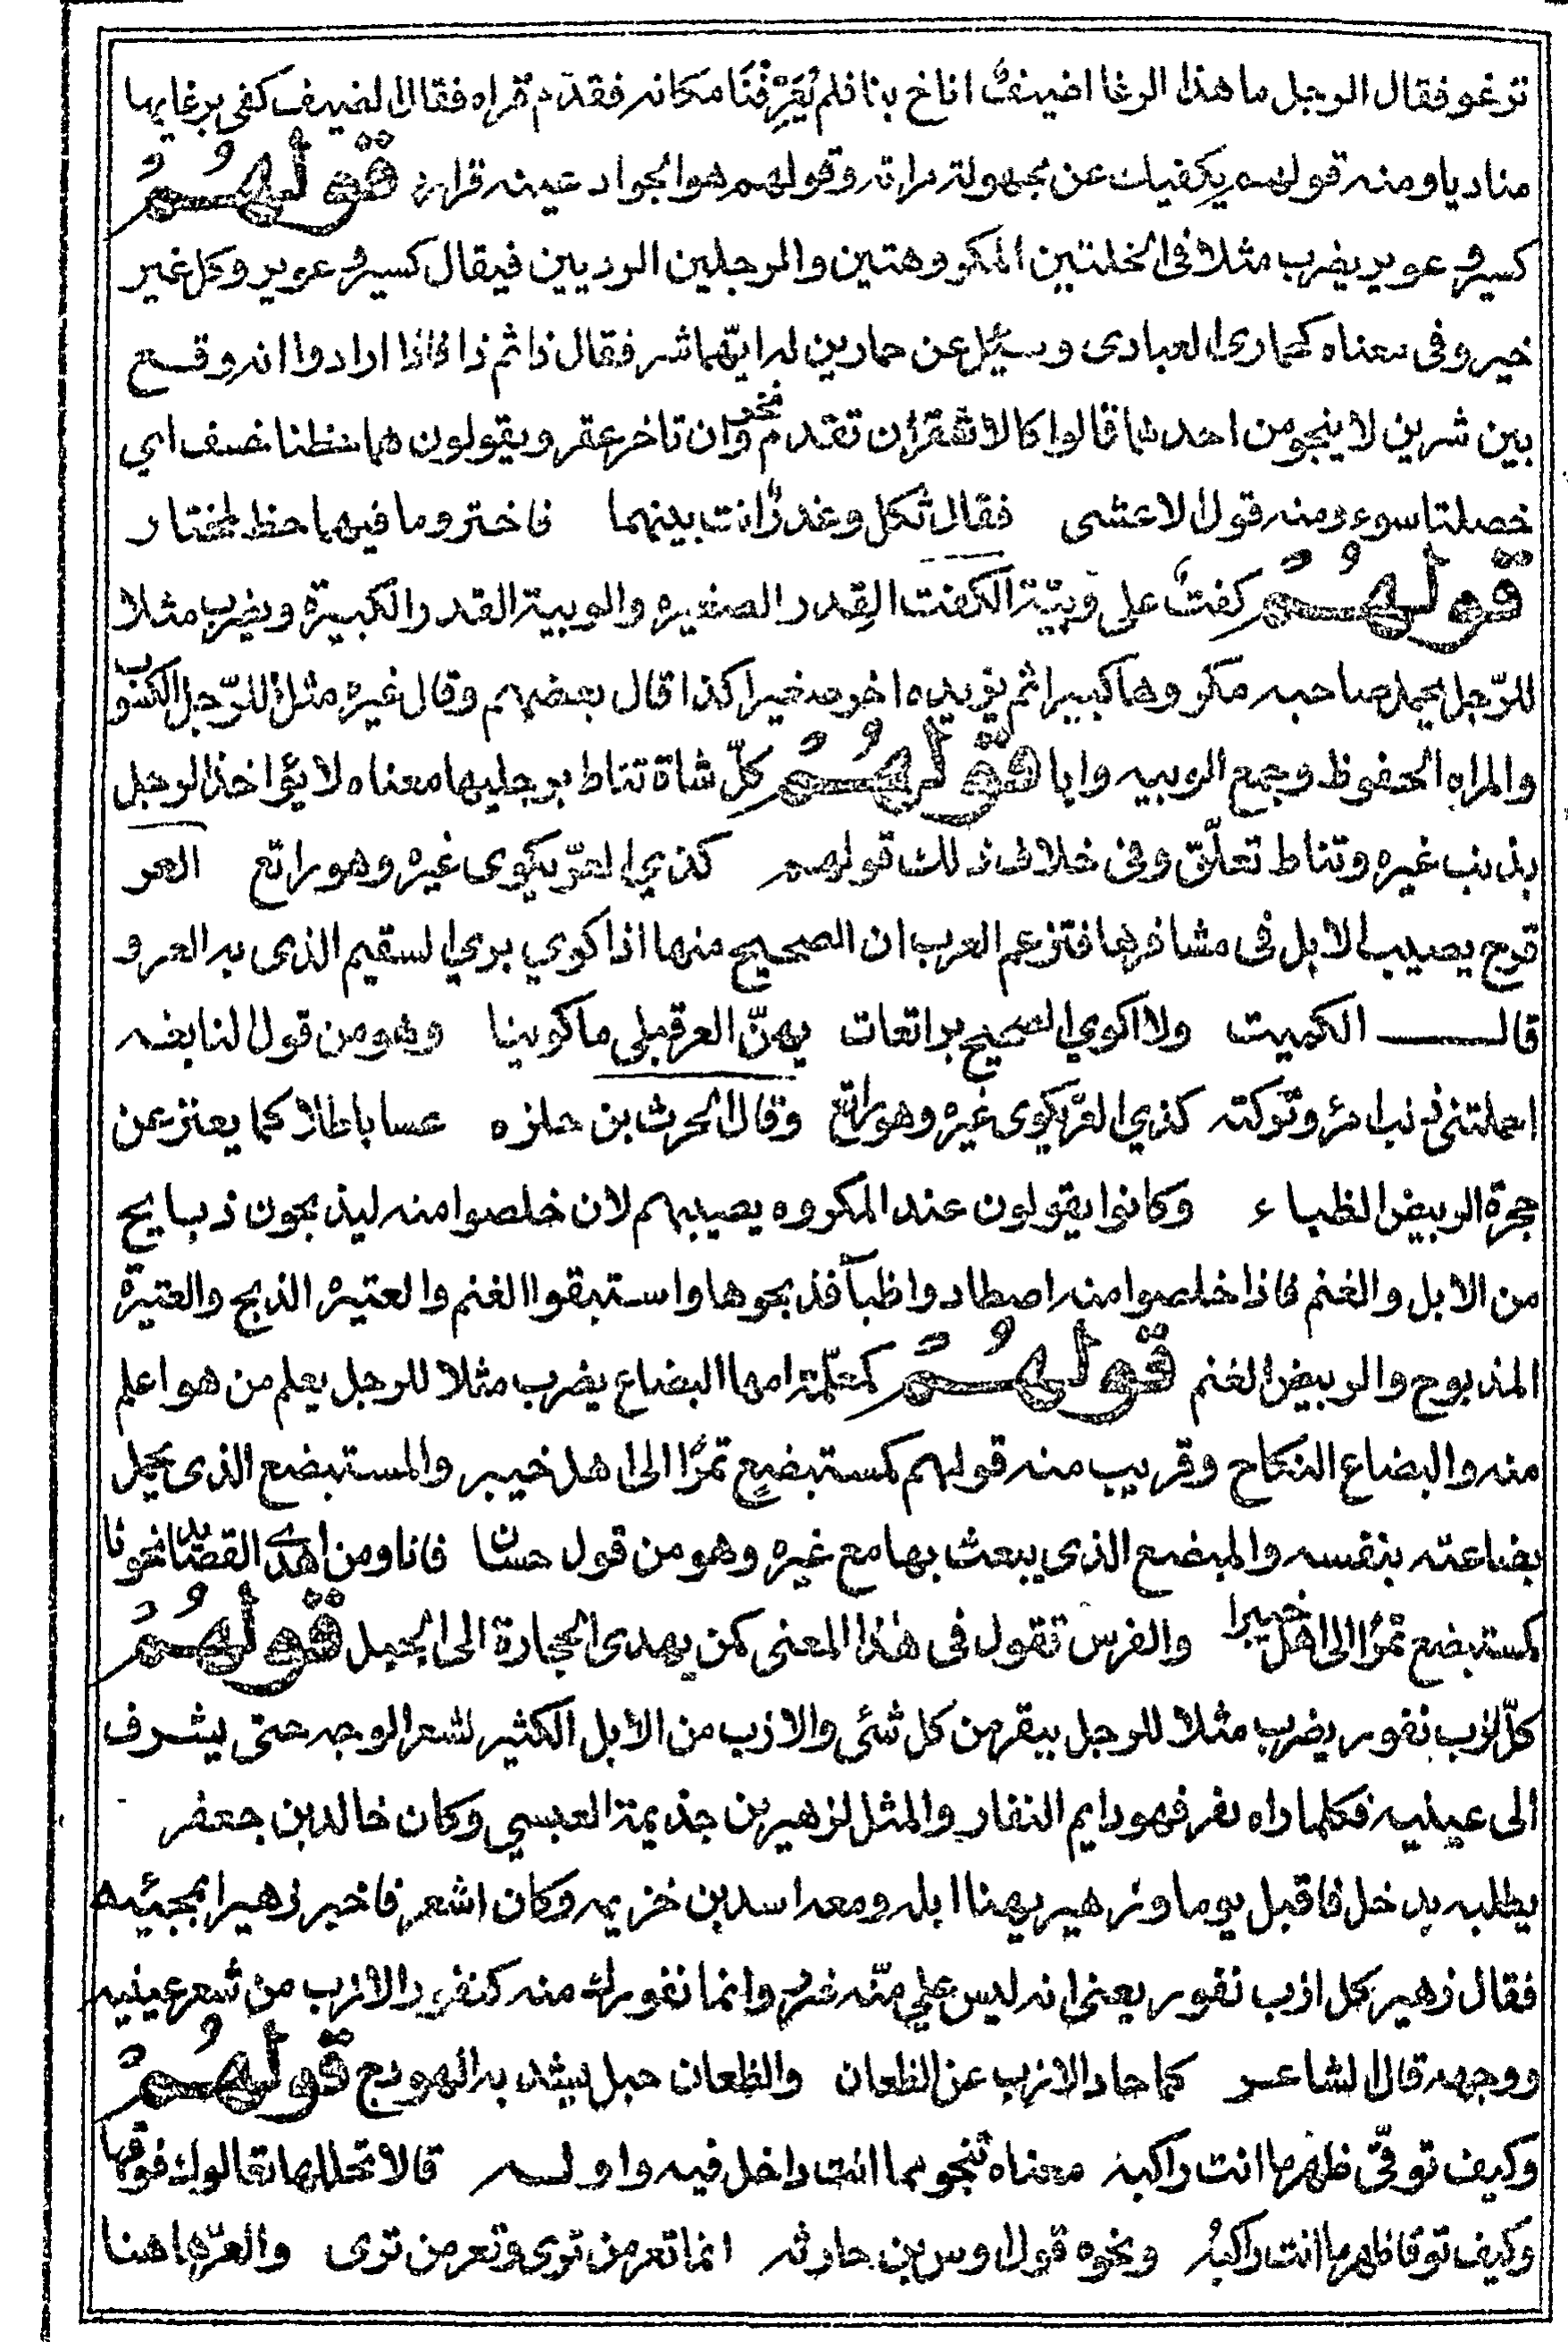 ترغو فقال الرجل ما هذا الرغا اضيفٌ اناخ بنا فلم يُعَرِّفْنَا مكانه فقدّم قراه فقال الضيف كفى برغايها
مناديا ومنه قولهم يكفيك عن مجهوله مراته وقولهم هو الجواد عينه فراره قولهم
كسير وعوير يضرب مثلا فى الخلتين المكروهتين والرجلين الرديين فيقال كسير وعوير وكل غير
خير وفى معناه كحمارى العبادى وسئل عن حمارين له ايّهما شر فقال ذا ثم ذا فاذا ارادوا انه وقع
بين شرين لا ينجو من احدهما قالوا كالاشقر ان تقدم نحر وان تاخر عقر ويقولون هما خطتا خسف اى
خصلتا سوء ومنه قول الاعشى فقال ثكل وغدرٌ انت بينهما فاختر وما فيهما حظ لمختار
قولهم كفتٌ على وئيّة الكفت القِدر الصغيره والوبية القدر الكبيرة ويضرب مثلا
للرّجل يحمل صاحبه مكروها كبيرا ثم يزيده اخر صغيرا كذا قال بعضهم وقال غيره مثل للرّجل الكسوب
والمراه الحفوظ وجمع الوبيه وايا قولهم كلّ شاة تناط برجليها معناه لا يؤاخذ الرجل
بذنب غيره وتناط تعلّق وفى خلاف ذلك قولهم كذي العرّ يكوى غيره وهو راتع العر
قرح يصيب الابل فى مشافرها فتزعم العرب ان الصحيح منها اذا كوي بري السقيم الذى به العر و
قال الكميت ولا اكوي الصحيح براتعات بهنّ العر قبلى ما كوينا وهو من قول النابغه
احملتنى ذنب امرء وتركته كذي العرّ يكوى غيره وهو راتع وقال الحرث بن حلزه عسا باطلا كما يعتز عن
حجرة الربيض الظباء وكانوا يقولون عند المكروه يصيبهم لان خلصوا منه ليذبحون ذبايح
من الابل والغنم فاذا خلصوا منه اصطادوا ظبآ فذبحوها واستبقوا الغنم والعتيره الذبح والعتيرة
المذبوح والربيض الغنم قولهم كمعلّمة امها البضاع يضرب مثلا للرجل يعلم من هو اعلم
منه والبضاع النكاح وقريب منه قولهم كمستبضع تمرًا الى اهل خيبر والمستبضع الذى يحمل
بضاعته بنفسه والمبضع الذى يبعث بها مع غيره وهو من قول حسان فانا ومن اهدى القصايد نحونا
كمستبضع تمرًا الى اهل خيبرا والفرس تقول فى هذا المعنى كمن يهدى الحجارة الى الجبل قولهم
كلّ ازب نفور يضرب مثلا للرجل ينفر من كل شئى والازب من الابل الكثير لشعر الوجه حتى يشرف
الى عينيه فكلما راه نفر فهو دايم النفار والمثل لزهير بن جذيمة العبسي وكان خالد بن جعفر
يطلبه بدخل فاقبل يوما وزهير يهنا ابله ومعه اسد بن خزيمه وكان اشعر فاخبر زهيرا بمجيئه
فقال زهير كل ازب نفور يعنى انه ليس على منّه ضر وانما نفورك منه كنفور الازب من شعر عينيه
ووجهه قال الشاعر كما حاد الازب عن الظعان والظعان حبل يشد به الهودج قولهم
وكيف توقّى ظهر ما انت راكبه معناه تنجو مما انت داخل فيه واوله قالا تحللها تعالوك فوقها
وكيف توقا ظهر ما انت راكبُه ونحوه قول اوس بن حارثه انما تعز من ترى وتعر من ترى والعرّ هاهنا